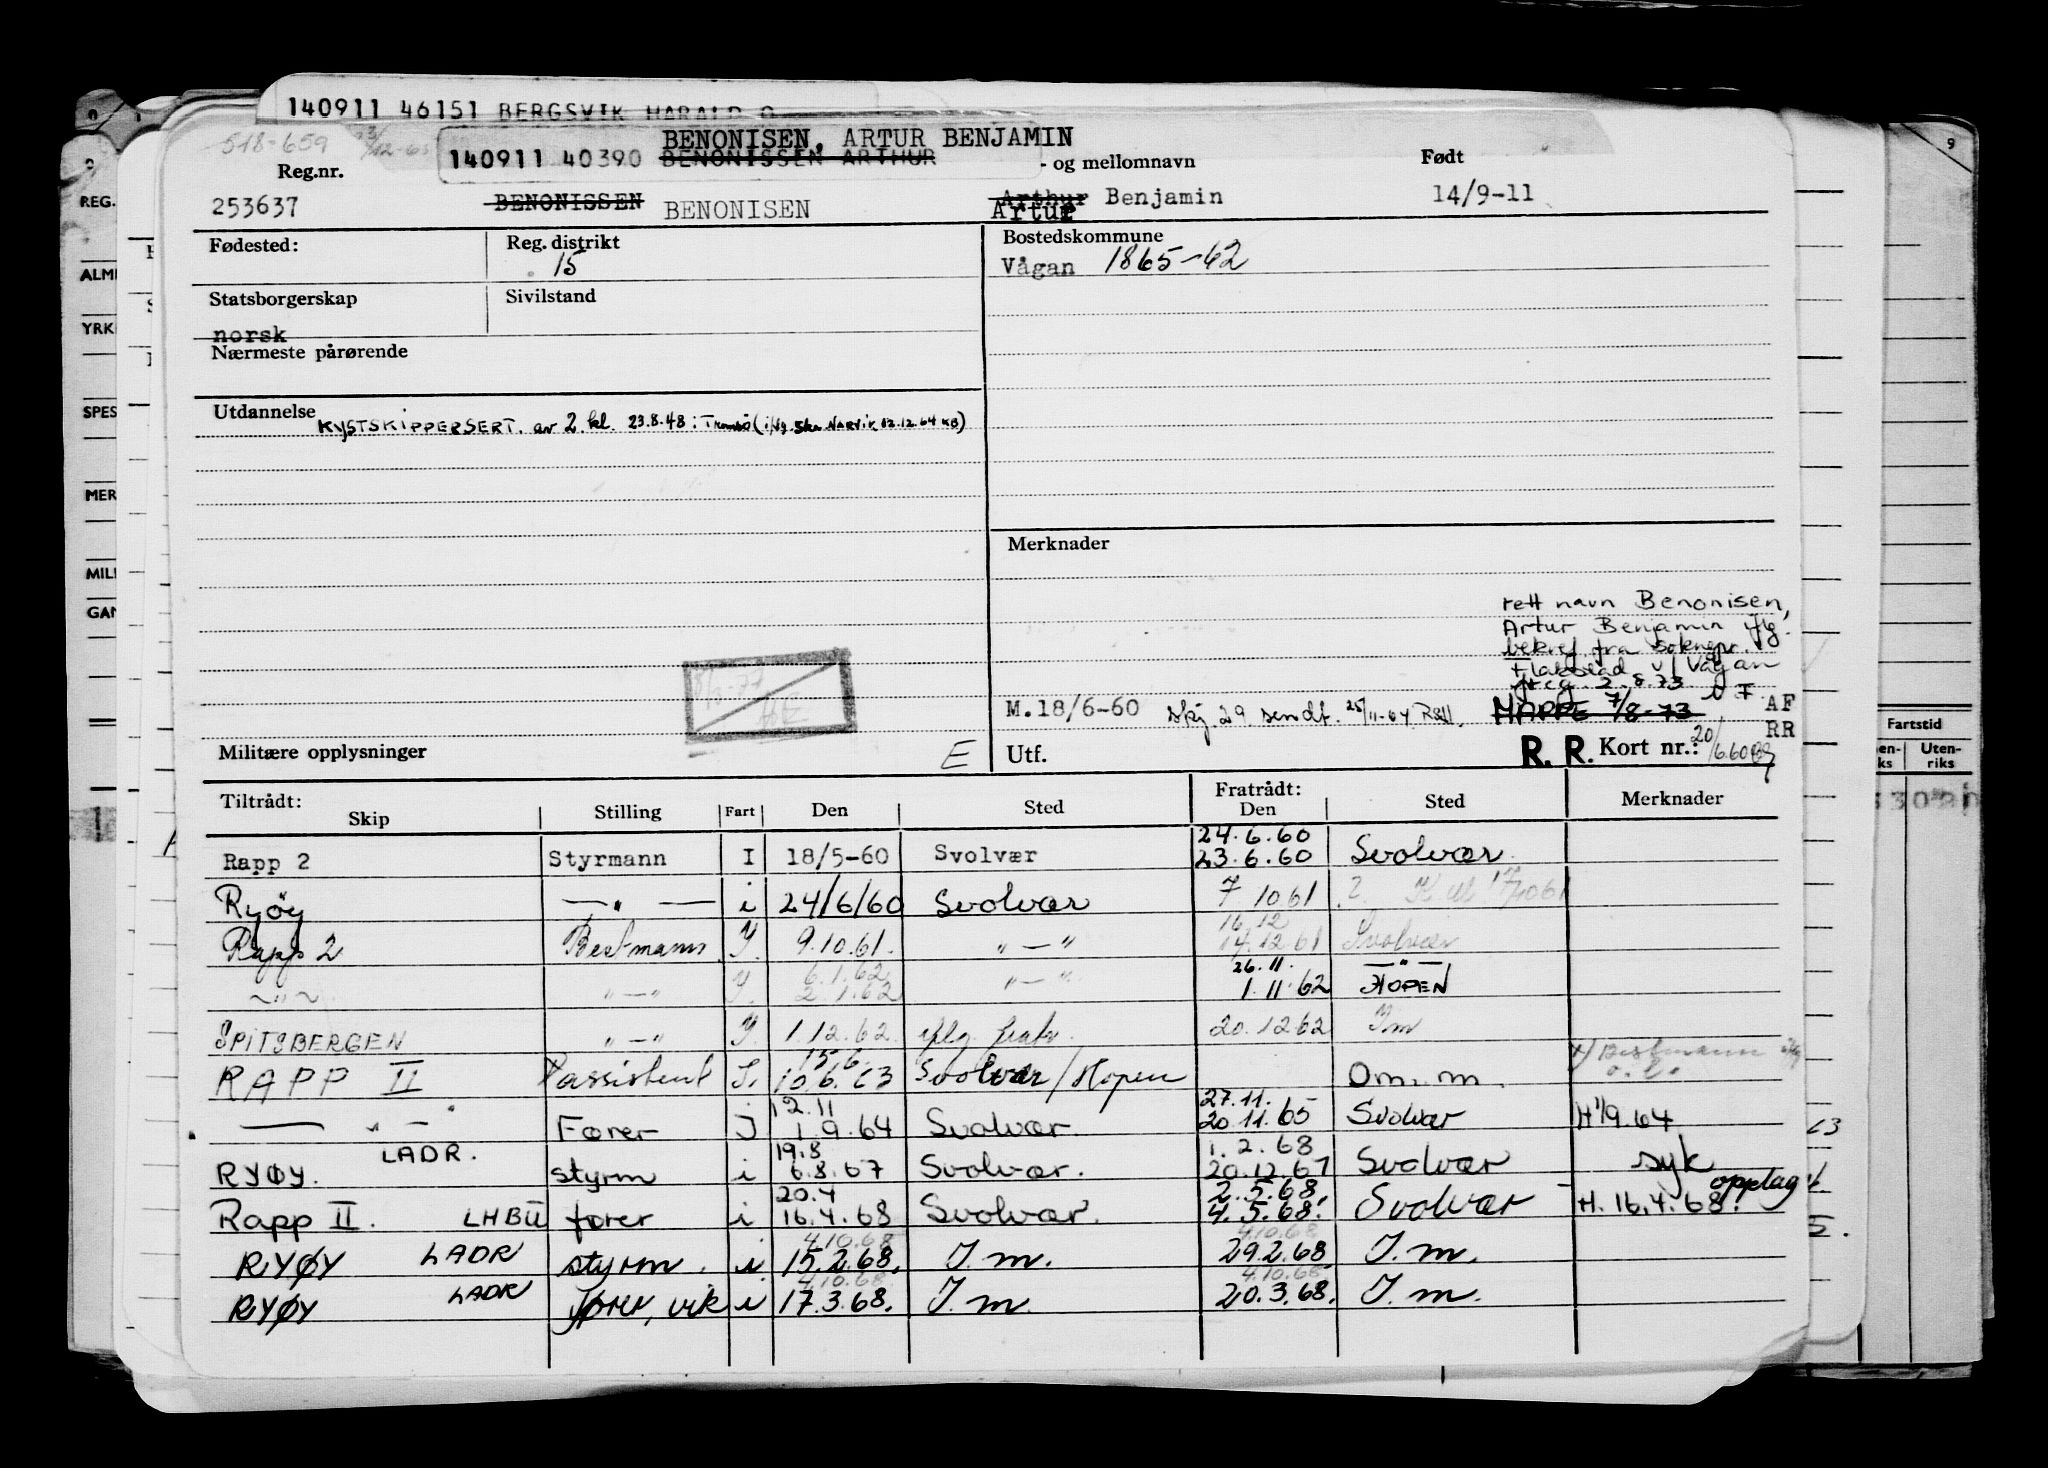 140911 46151 BERGSVIK HARALD O
518-659
BENONISEN, ARTUR BENJAMIN
140911 40390 BENONISSEN ARTHUR
- og mellomnavn
Født
Reg.nr.
253637
BENONISSEN BENONISEN
Arthur Benjamin
Artur
14/9-11
Fødested:
Reg. distrikt
15
Bostedskommune
Vågan 1865-42
Statsborgerskap
norsk
Sivilstand
Nærmeste pårørende
Utdannelse
KYSTSKIPPERSERT. av 2. kl. 23.8.48 i Tromsø (i/flg. skr. NARVIK 02.12.64 KB)
Merknader
rett navn Benonisen,
Artur Benjamin iflg.
bekref fra soknepr.
Flakstad v/ Vågan
2.8.73
M.18/6-60 skj. 29. sendt. 25/11-64
MAPPE 7/8-73
AF
RR
Militære opplysninger
E
Utf.
R. R. Kort nr.: 20/6.60
Tiltrådt:
Skip Stilling Fart Den Sted
Fratrådt:
Den Sted Merknader
24.6.60
Rapp 2 Styrmann I 18/5-60 Svolvær 23.6.60 Svolvær
Ryøy —"— i 24/6/60 Svolvær 7.10.61
16.12
Rapp 2 Bestmann I. 9.10.61. "—" 14.12.61 Svolvær
6.1.62 26.11. —"—
~"~ "—" I. 2.1.62 "—" 1.11.62 HOPEN
SPITSBERGEN "—" I. 1.12.62 iflg. 20.12.62 Im
15.6.
RAPP II assistent I. 10.6.63 Svolvær/Hopen Om. m. x) Bestmann
12.11 27.11.
— " — Fører I 1.9.64 Svolvær 20.11.65 Svolvær H 1/9.64
19.8 1.2.68
RYØY. LADR. styrm i 6.8.67 Svolvær. 20.12.67 Svolvær syk
20.4 2.5.68. opplag
Rapp II. LHBU fører i 16.4.68 Svolvær. 4.5.68. Svolvær H. 16.4.68.
4.10.68 4.10.68
RYØY LADR styrm. i 15.2.68. I.m. 29.2.68 I.m.
4.10.68. 4.10.68
RYØY LADR fører, vik i 17.3.68. I.m. 20.3.68. I.m.
REG.
ALM
YRK
SPES
MER
MIL
GAN
9
Fartstid
Uten-
riks